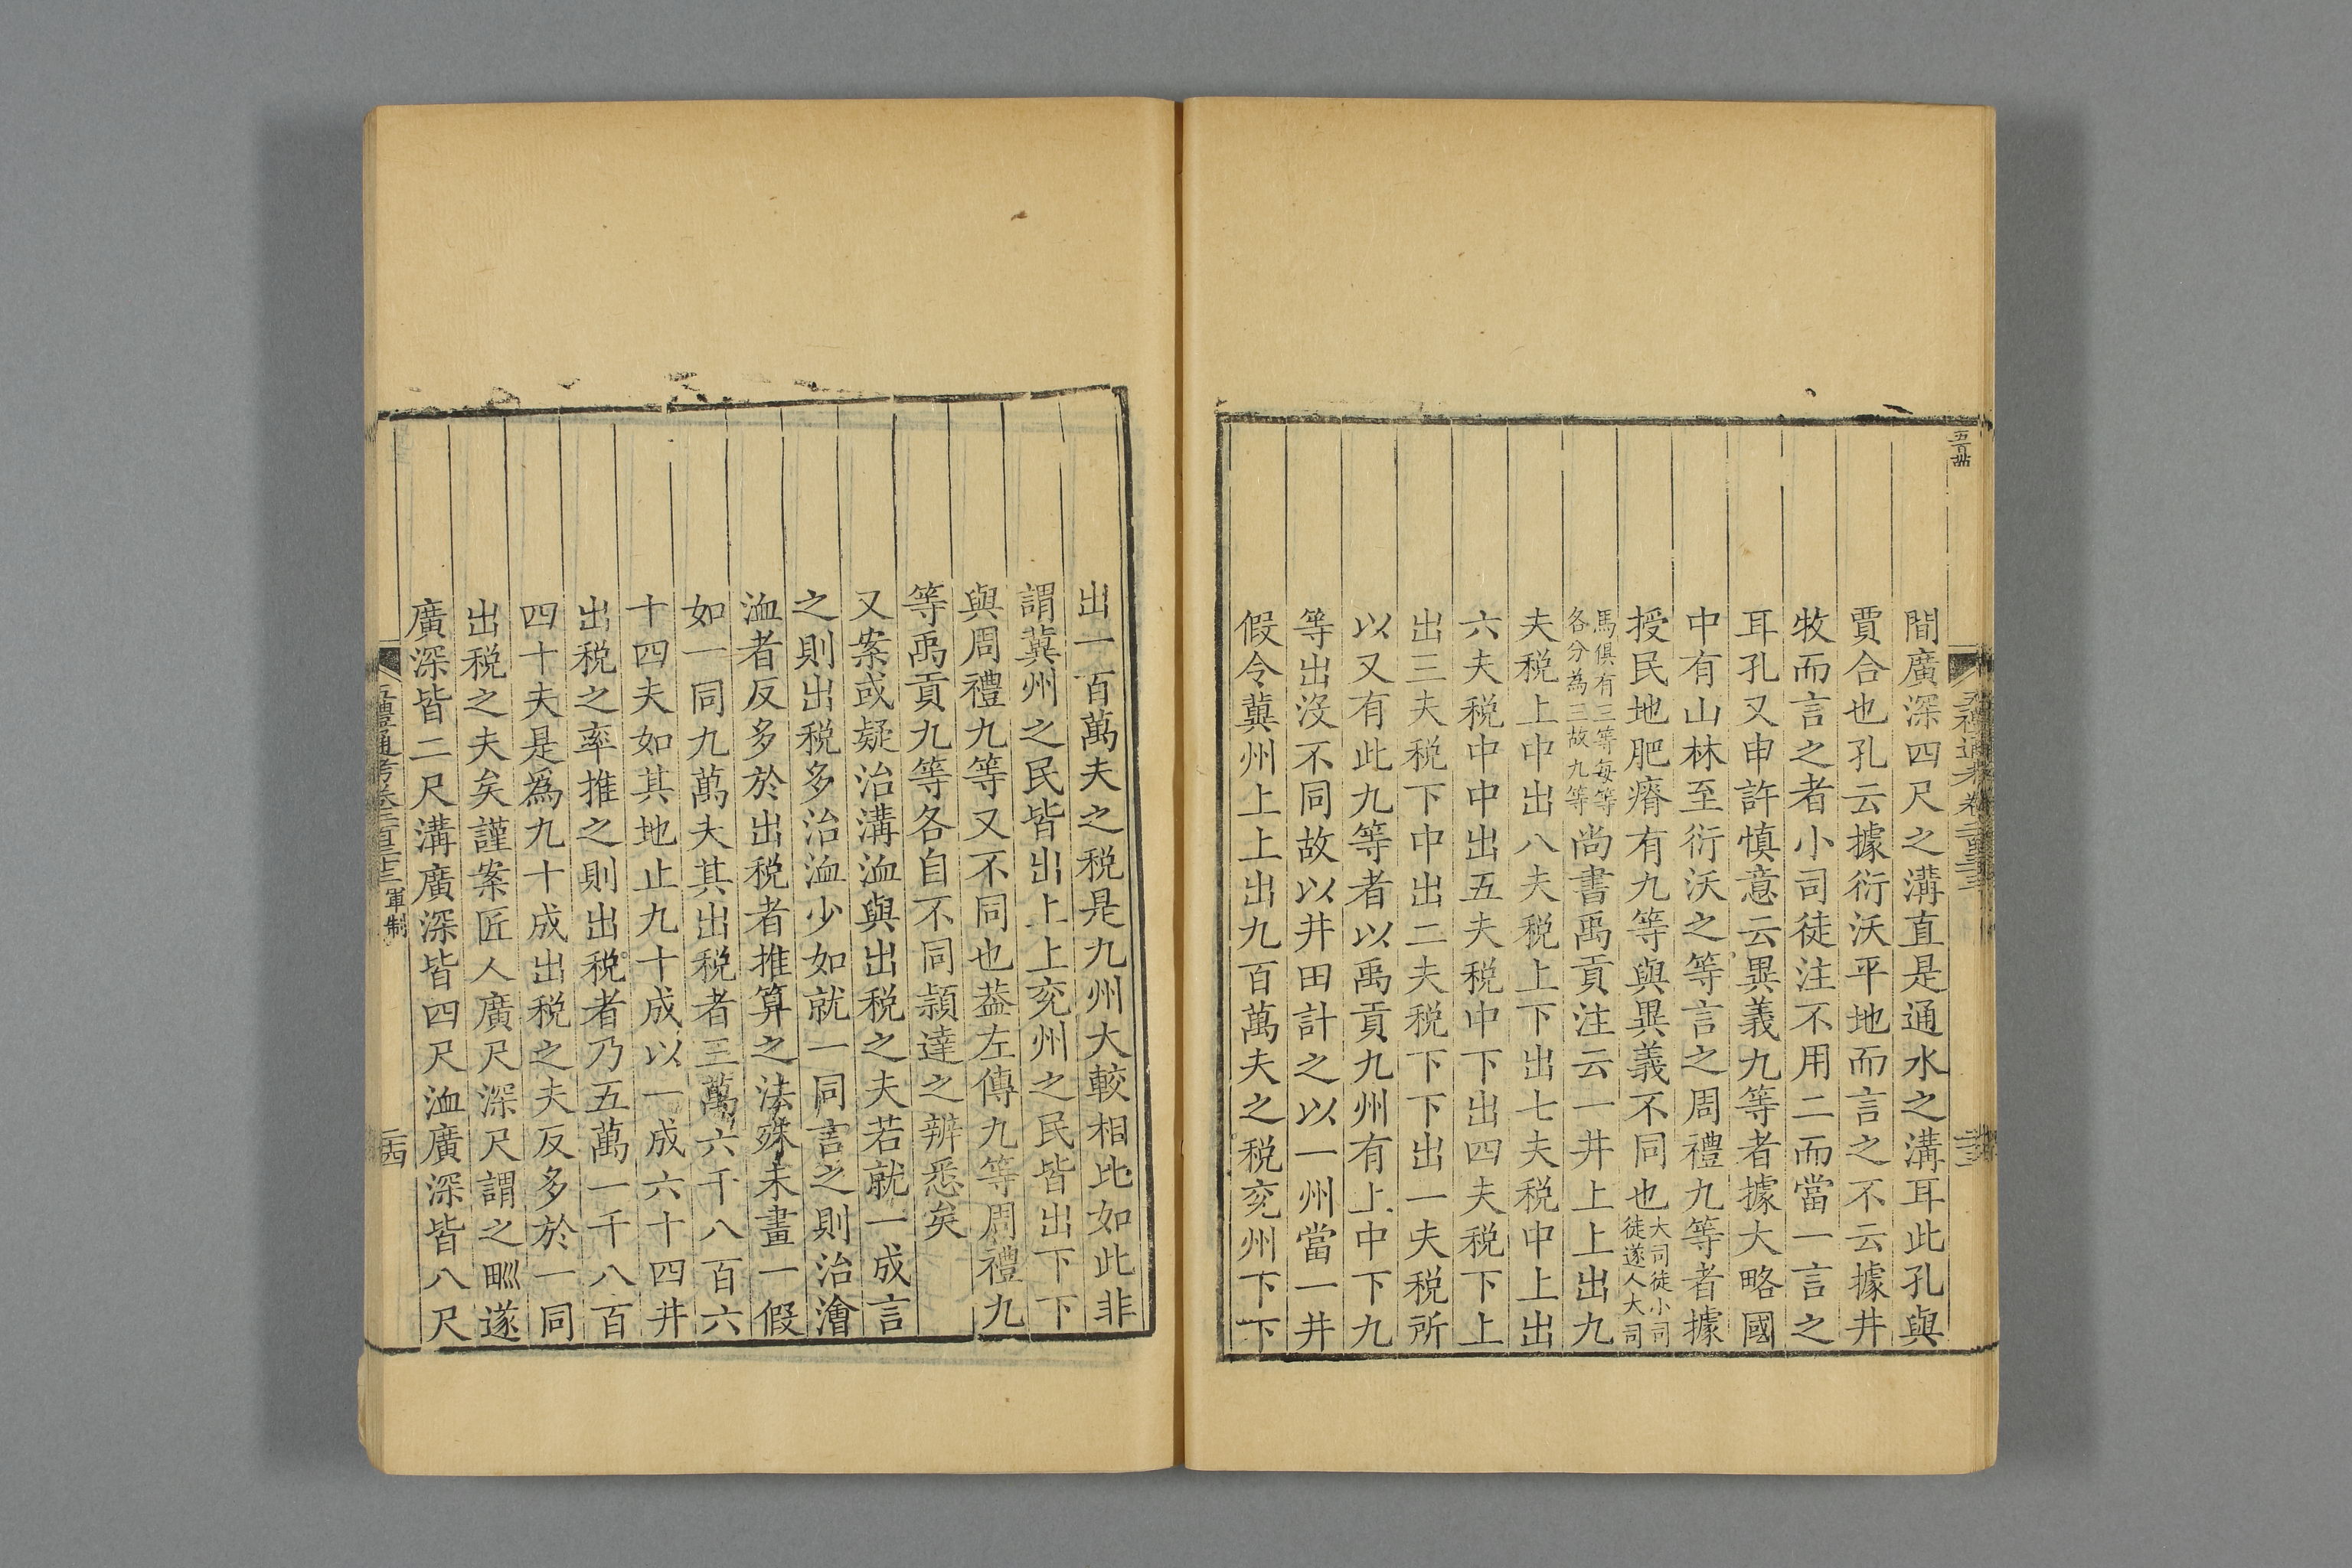 間廣深四尺之溝直是通水之溝耳此孔與
賈合也孔云據衍沃平地而言之不云據井
牧而言之者小司徒注不用二而當一言之
耳孔又申許慎意云異義九等者據大略國
中有山林至衍沃之等言之周禮九等者據
授民地肥瘠有九等與異義不同也大司徒小司徒遂人大司
馬俱有三等每等各分為三故九等尚書禹貢注云一井上上出九
夫稅上中出八夫稅上下出七夫稅中上出
六夫稅中中出五夫稅中下出四夫稅下上
出三夫稅下中出二夫稅下下出一夫稅所
以又有此九等者以禹貢九州有上中下九
等出沒不同故以井田計之以一州當一井
假令冀州上上出九百萬夫之稅兗州下下
出一百萬夫之稅是九州大較相比如此非
謂冀州之民皆出上上兗州之民皆出下下
與周禮九等又不同也葢左傳九等周禮九
等禹貢九等各自不同頴達之辨悉矣
又案或疑治溝洫與出稅之夫若就一成言
之則出稅多治洫少如就一同言之則治澮
洫者反多於出稅者推算之法殊未畫一假
如一同九萬夫其出稅者三萬六千八百六
十四夫如其地止九十成以一成六十四井
出稅之率推之則出稅者乃五萬一千八百
四十夫是爲九十成出稅之夫反多於一同
出稅之夫矣謹案匠人廣尺深尺謂之甽遂
廣深皆二尺溝廣深皆四尺洫廣深皆八尺
五禮通考卷二百三十三 軍制
二十四